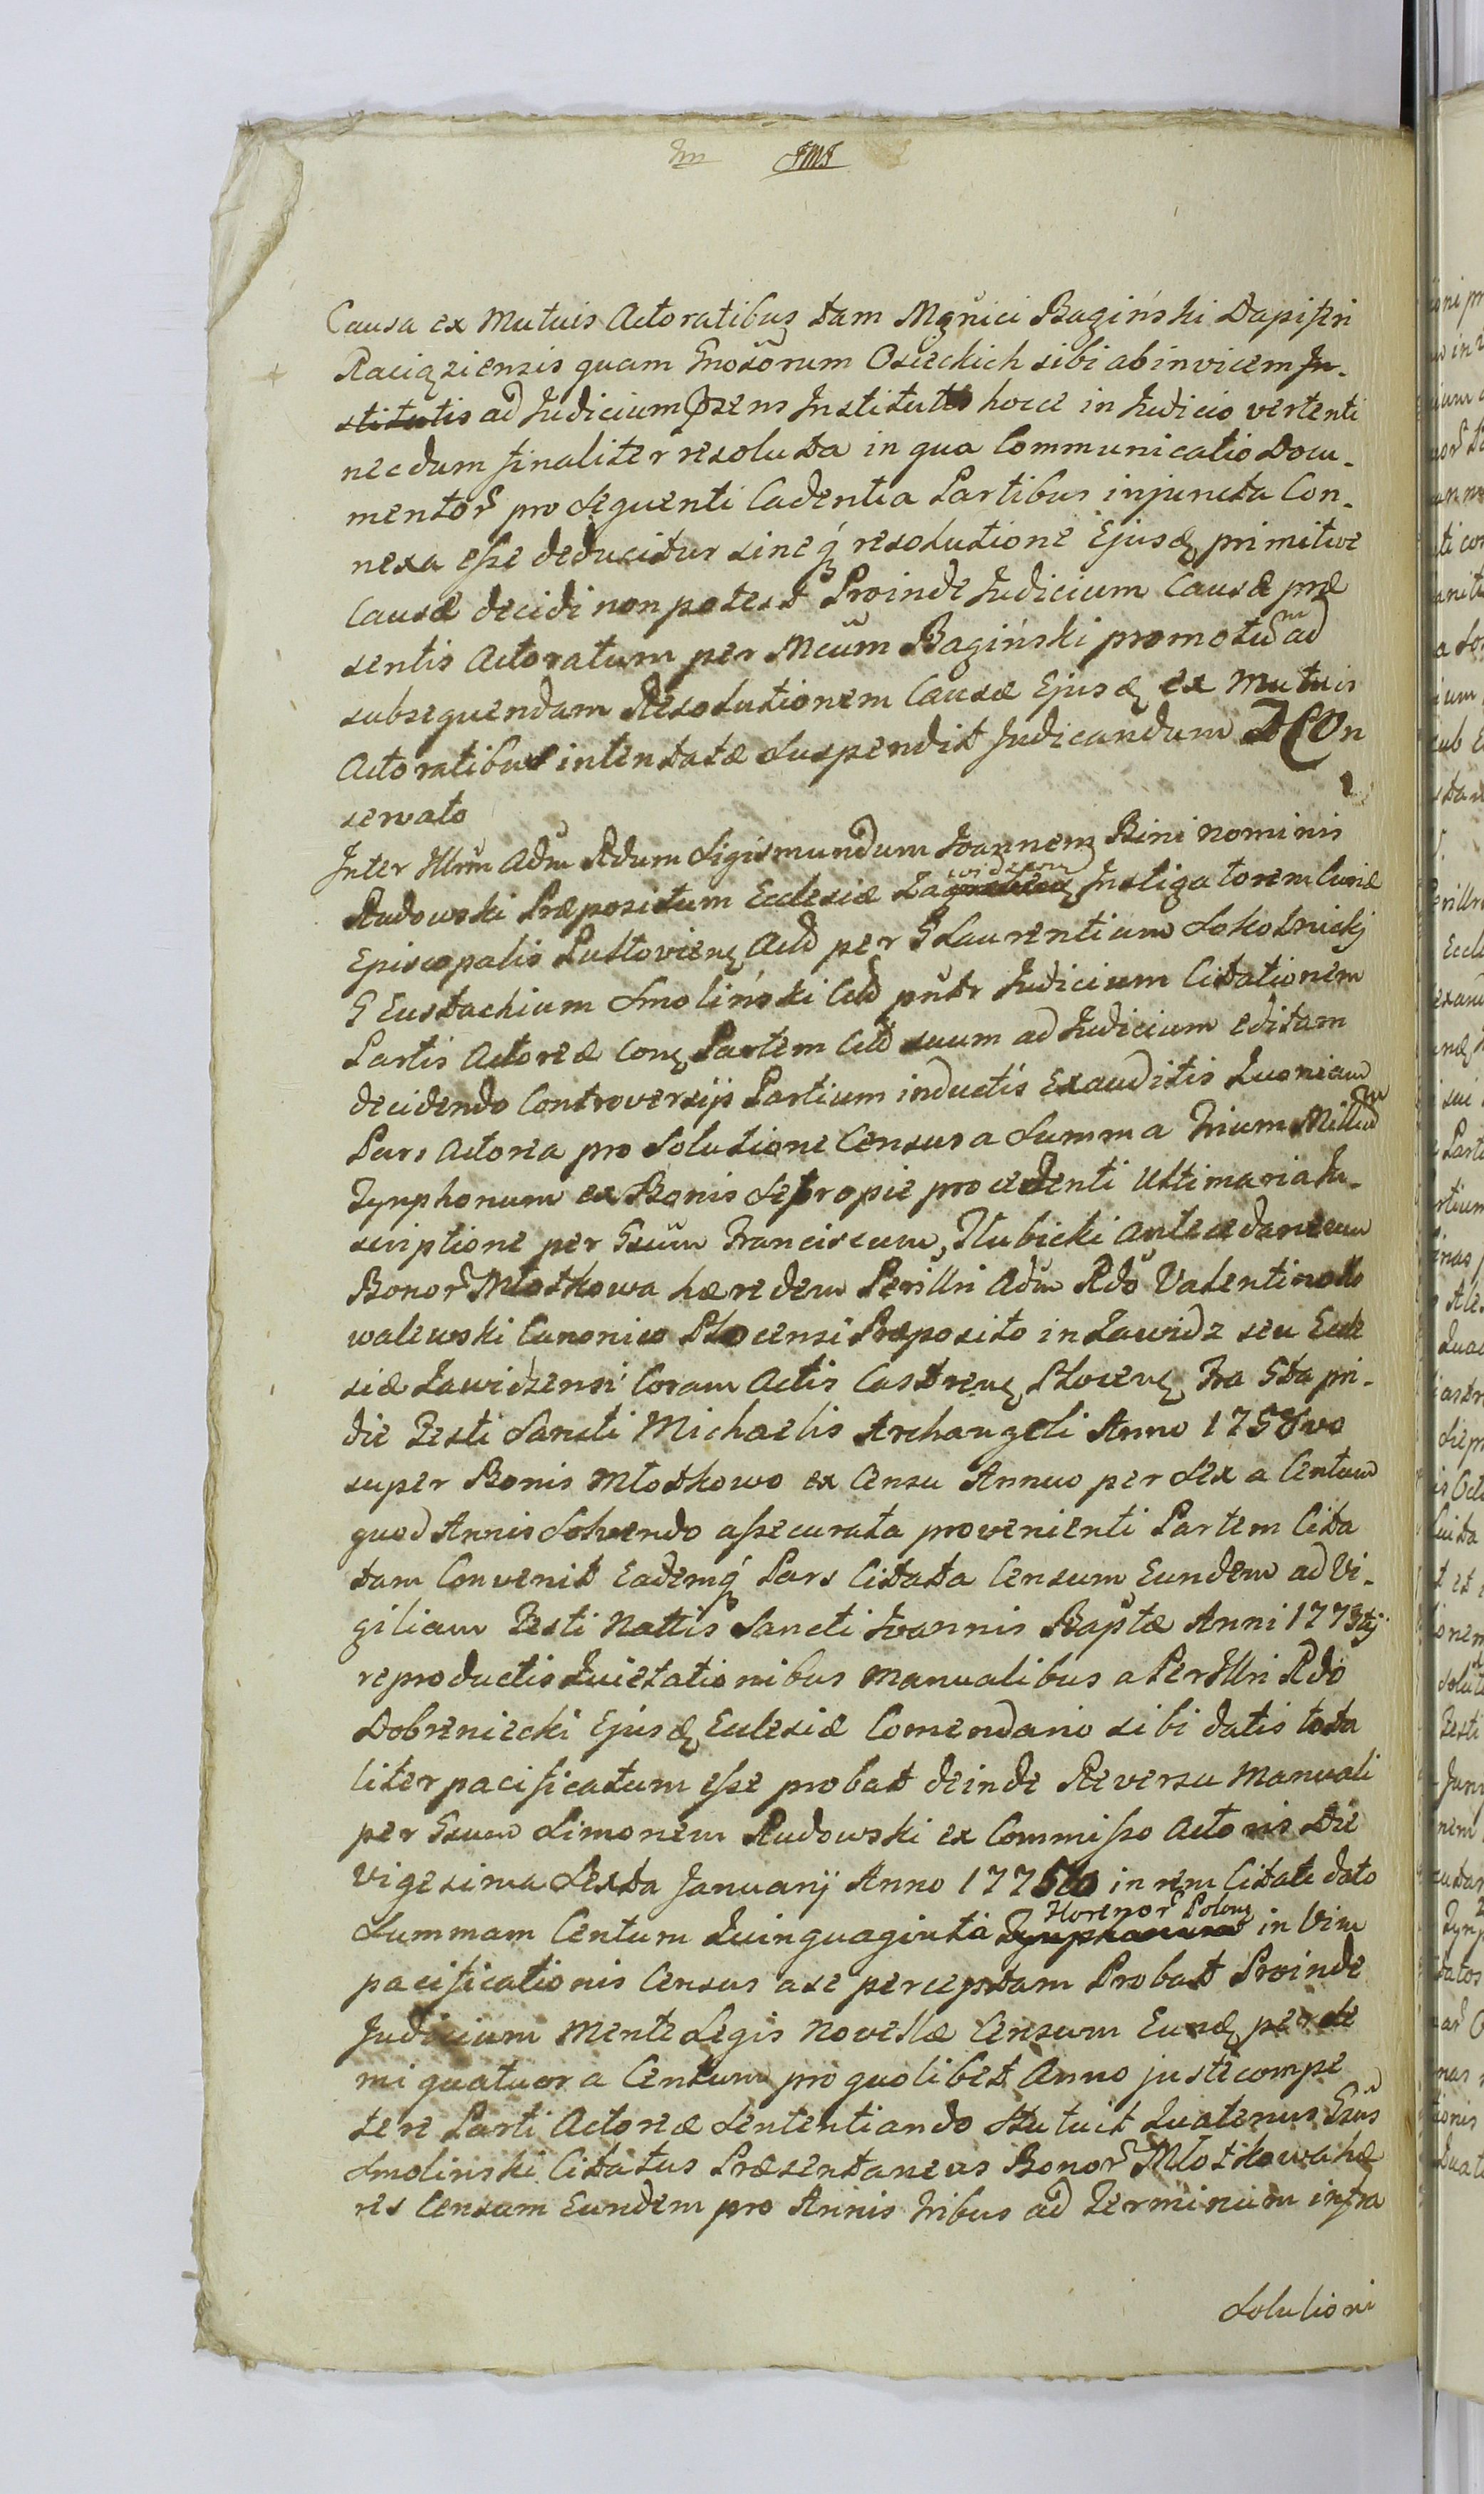 Im JMJ
Causa ex Mutuis Actoratibus tam Mgnici Bagiński Dapiferi
Raciąziensis quam Gnosorum Osieckich sibi ab invicem In-
stitutis ad Judicium Psens Institutis hocce in Judicio vertenti
necdum finaliter resoluta in qua Communicatio Docu-
mentor pro sequenti Cadentia Partibus injuncta Con-
nexa esse deducitur sineq resolutione Ejusd primitivæ
Causæ decidi non potest Proinde Judicium Causæ præ
sentis Actoratum per Mcum Bagiński promotum ad
subsequendam Resolutionem Causæ Ejusd ex Mutuis
Actoratibus intentatæ suspendit Judicandum
servato
Inter Illrm Adm Rdum Sigismundum Joannem Bini nominis
Rudowski Præpositum Ecclesiæ Zawidzen Instigatorem Curiæ
Episcopalis Pultoviens Actd per G Laurentium Sokolnicki
G Eustachium Smoliński Citd pntr Judicium Citationem
Partis Actoreæ Conq Partem Citd suum ad Judicium editam
decidendo Controversiis Partium inductis Exauditis Quoniam
Pars Actorea pro Solutione Census a Summa Trium Millium
Tynphonum ex Bonis Sepropie procedenti Ultimaria In-
scriptione per Gsum Franciscum Hubicki antecedaneum
Bonor Młotkowa hæredem Perillri Adm Rdo Valentino Ko
walewski Canonico Plocensi Præposito in Zawidz seu Eccle
siæ Zawidzensi Coram Actis Castrens Plocens Fra 5ta pri-
die Festi Sancti Michaelis Archangeli Anno 1758vo
super Bonis Młotkowo ex Censu Annuo per Sex a Centum
quod Annis Solvendo assecurata provenienti Partem Cita
tam Convenit Eademq Pars Citata Censum Eundem ad Vi-
giliam Festi Nattis Sancti Joannis Baptæ Anni 1773tij
reproductis Quietationibus Manualibus a Per Illri Rdo
Dobreniecki Ejusd Ecclesiæ Comendario sibi datis tota
liter pacificatum esse probat deinde Reversu Manuali
per Gsum Simonem Rudowski ex Commisso Actoris Die
Vigesima Sexta Januarij Anno 1775to in rem Citati dato
Summam Centum Quinquaginta Florenor Polon in Vim
pacificationis Census a se perceptam Probat Proinde
Judicium Mente Legis Novellæ Censum Eund per se
mi quatuor a Centum pro quolibet Anno juste compe
tere Parti Actoreæ Sententiando Statuit Quatenus Gsus
Smolinski Citatus Præsentaneus Bonor Młotkowa hæ
res Censum Eundem pro Annis tribus ad Terminum infra
Solutioni